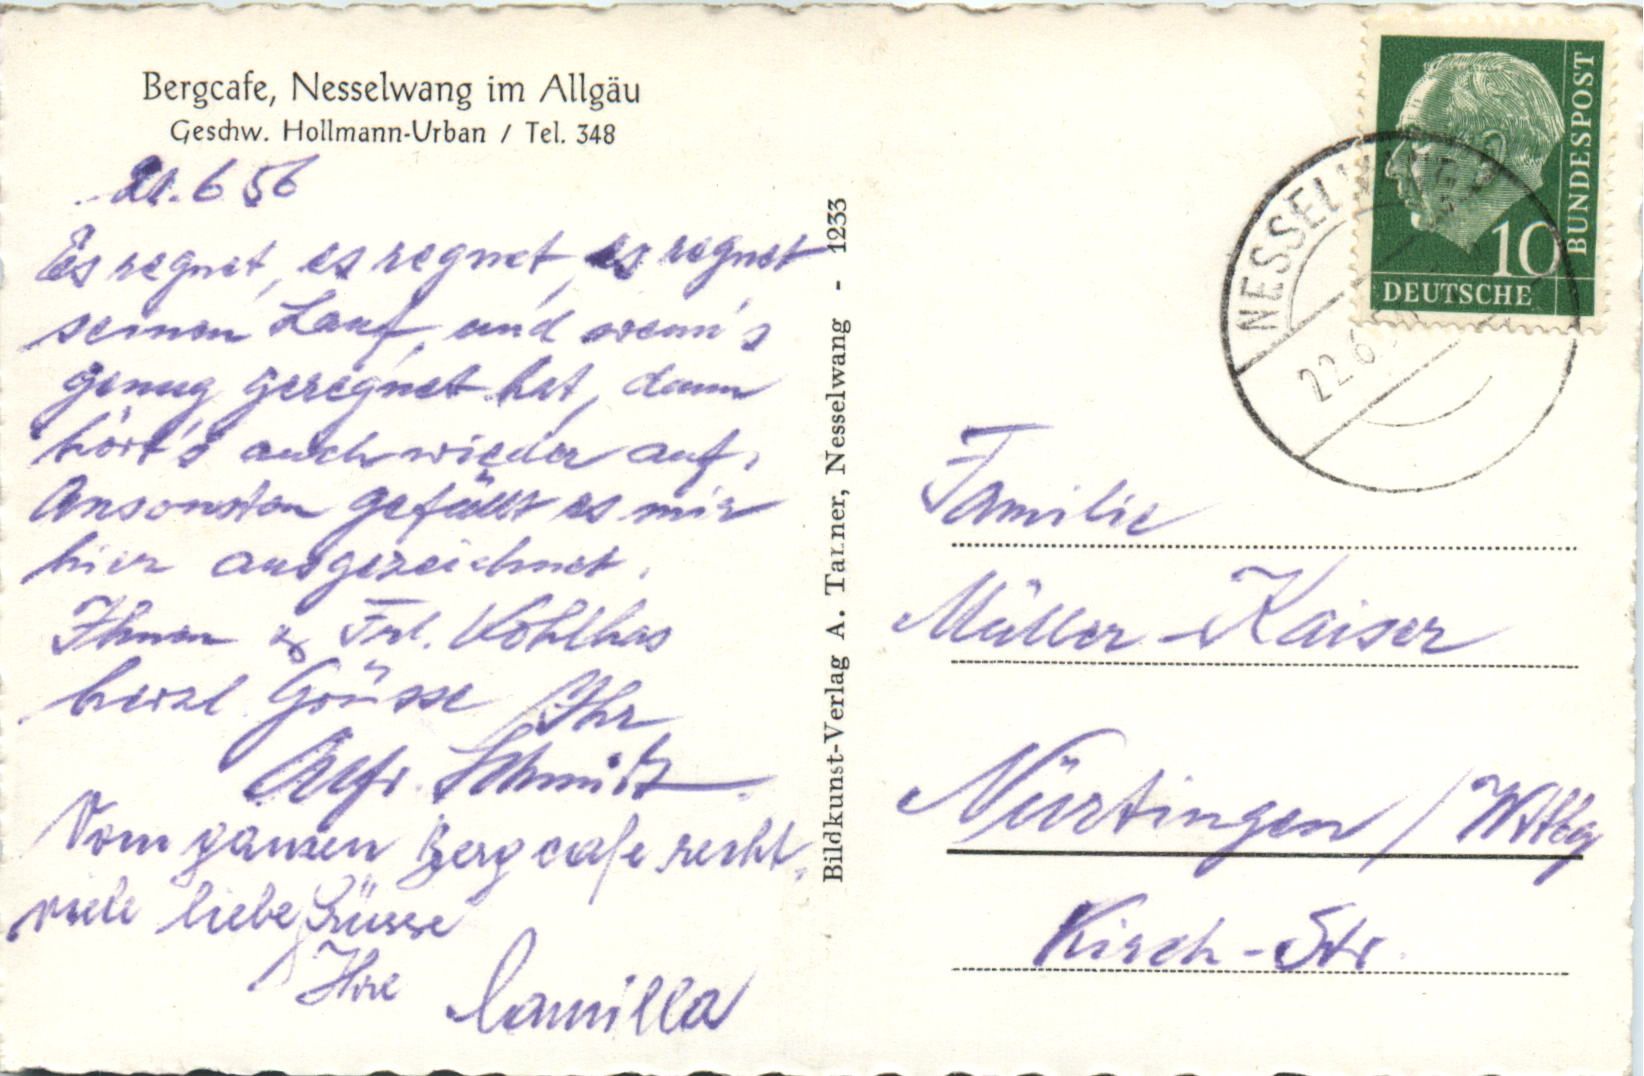 Bergcafe, Nesselwang im Allgäu
Geschw. Hollmann-Urban / Tel. 348
21.6.56
Es regnet, es regnet, es regnet
seinen Lauf, und wenn's
genug geregnet hat, dann
hört's auch wieder auf.
Ansonsten gefällt es mir
hier ausgezeichnet.
Ihnen & Frl. Kohlhas
herzl. Grüsse Ihr
Alfr. Schmitz
Vom ganzen Bergcafe recht
viele liebe Grüsse
Ihre Camilla
Bildkunst-Verlag A. Tanner, Nesselwang - 1233
DEUTSCHE
BUNDESPOST
10
NESSELWANG
22.6.
Familie
Müller-Kaiser
Nürtingen / Wttbg
Kirch-Str.